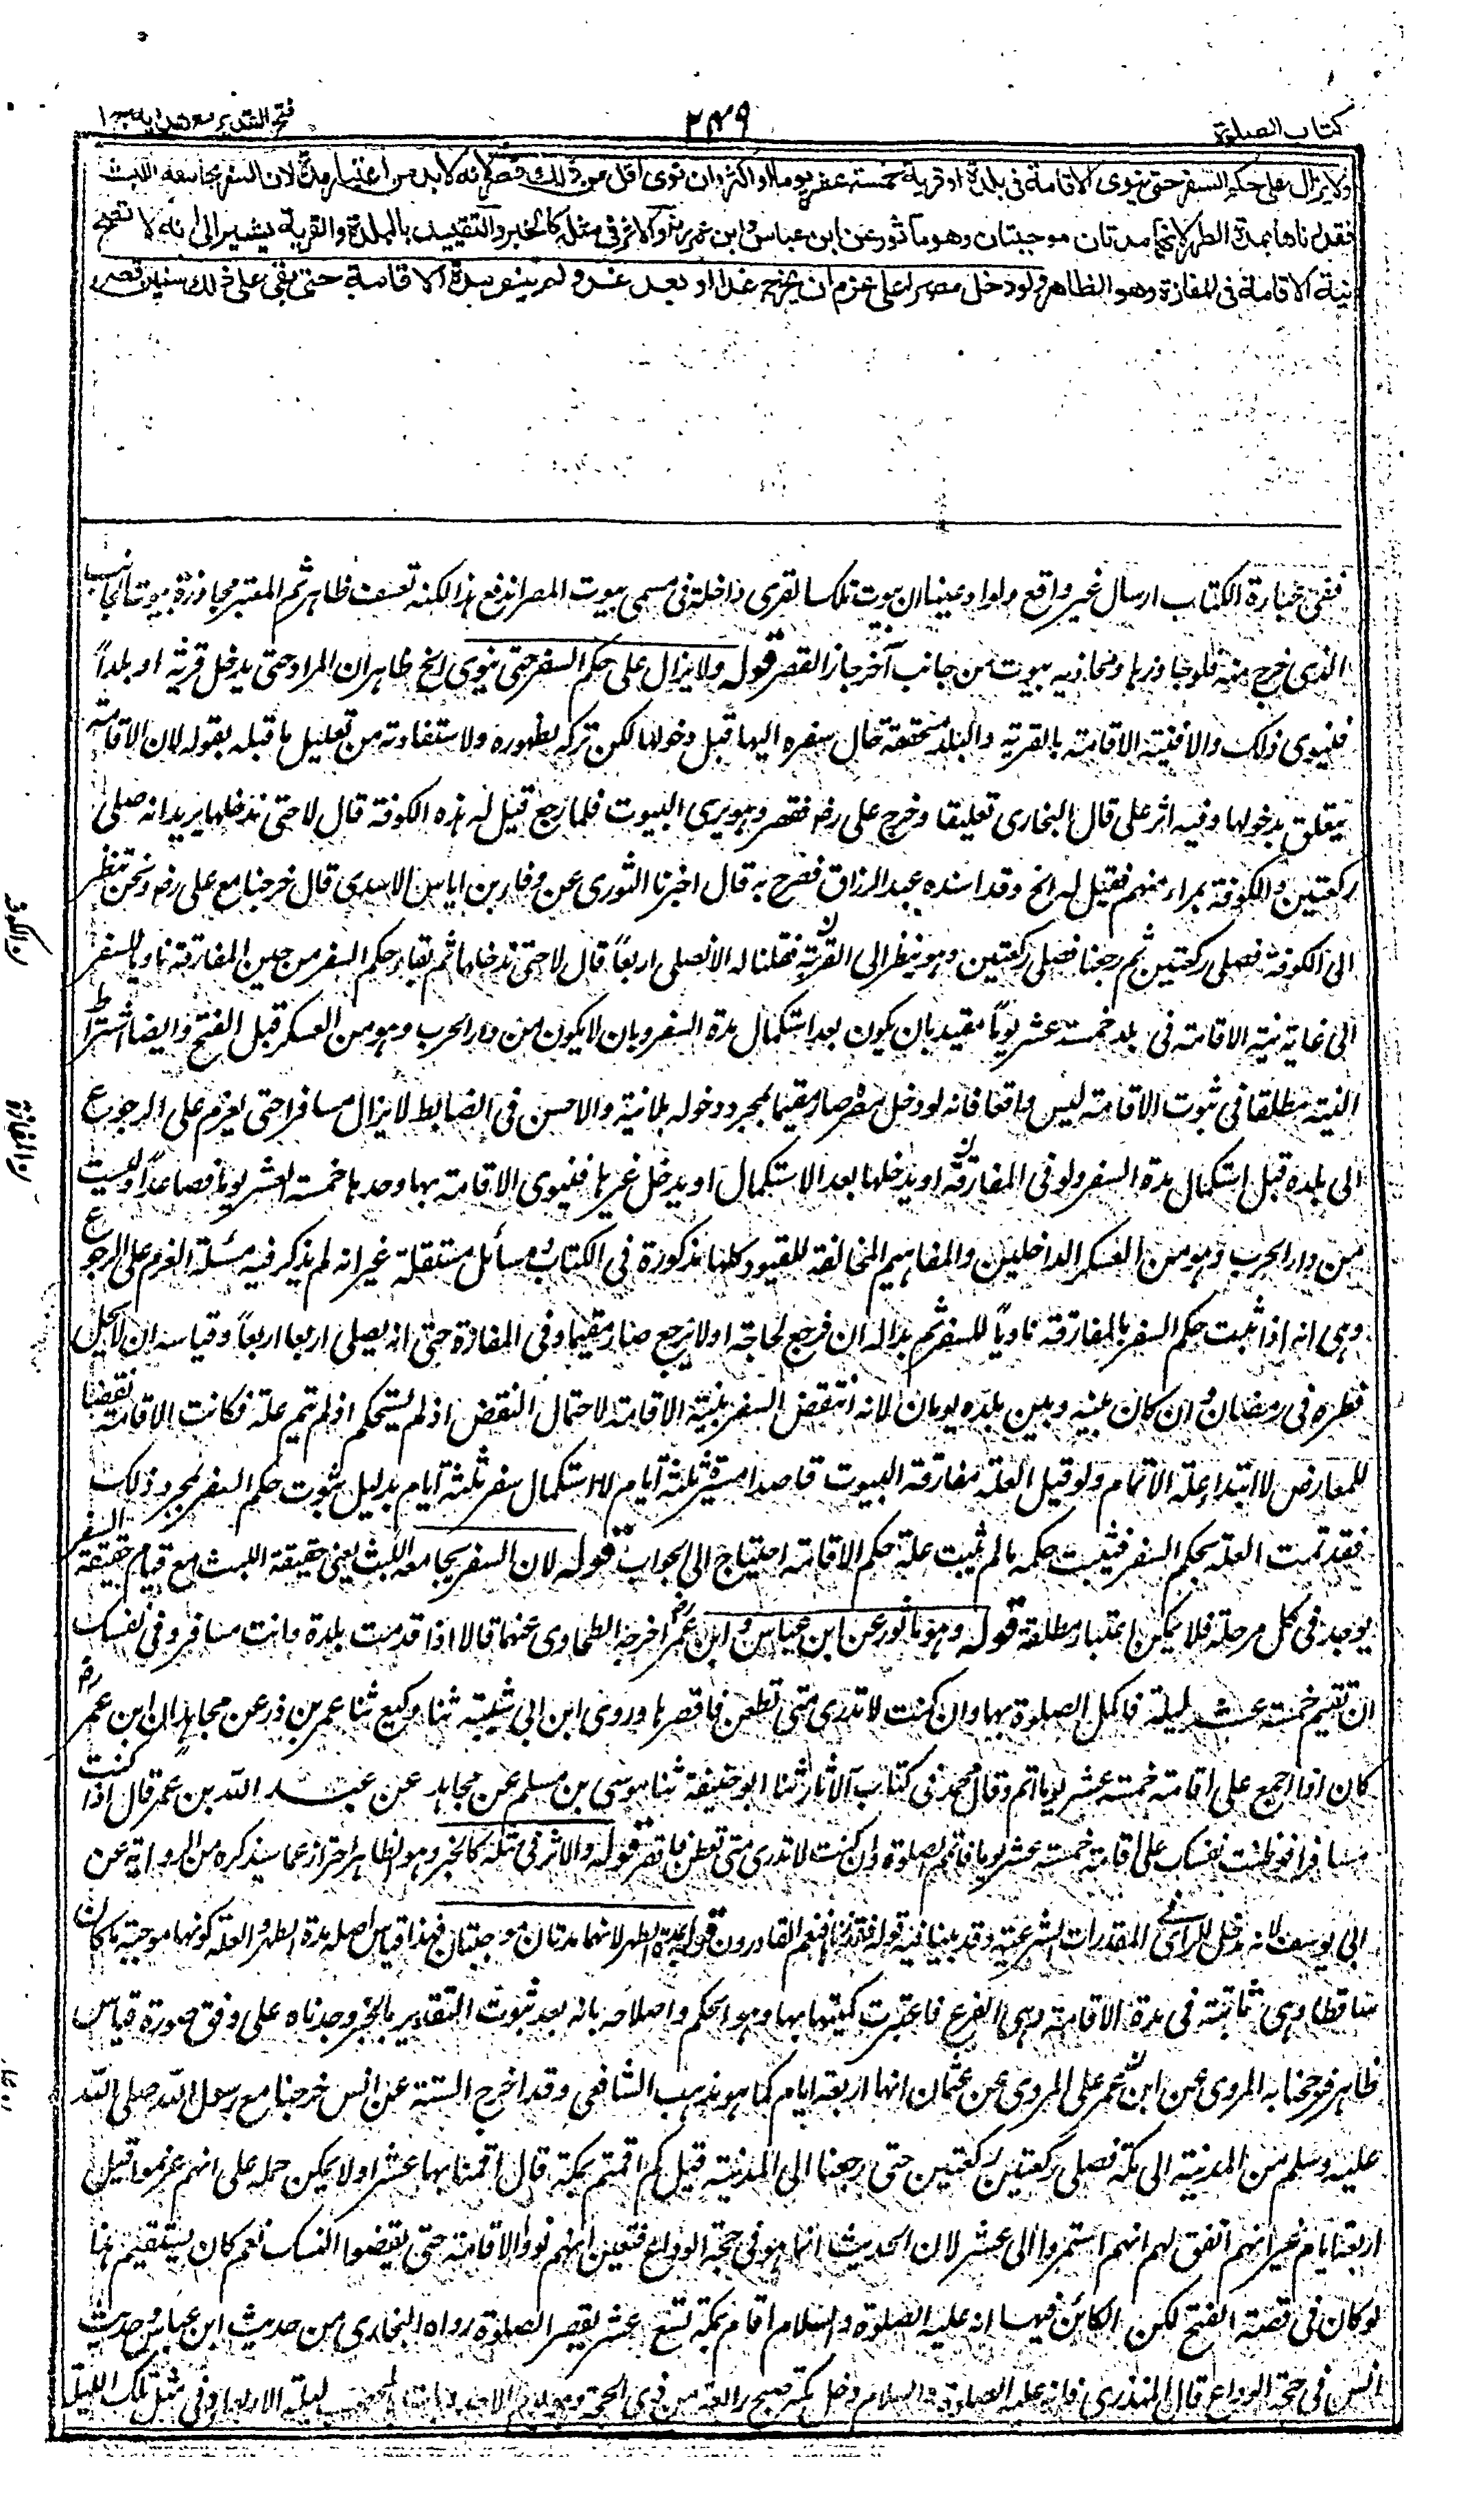 كتاب الصلوة
٢٤٩
فتح القدير مع هدايه ج ١
ولا يزال على حكم السفر حتى ينوى الاقامة فى بلدة او قرية خمسة عشر يوما او اكثر وان نوى اقل من ذلك قصر لانه لابد من اعتبار مدة لان السفر يجامعه اللبث
فقدرناها بمدة الطهر لانهما مدتان موجبتان وهو مأثور عن ابن عباس وابن عمر رض والاثر فى مثله كالخبر والتقييد بالبلدة والقرية يشير الى انه لا تصح
نية الاقامة فى المفازة وهو الظاهر ولو دخل مصرا على عزم ان يخرج غدا او بعد غد ولم ينو مدة الاقامة حتى بقى على ذلك سنين قصر
ففى عبارة الكتاب ارسال غير واقع ولو ادعينا ان بيوت تلك القرى داخلة فى مسمى بيوت المصر اندفع هذا لكنه تعسف ظاهر ثم المعتبر مجاوزة بيوت الجانب
الذى خرج منه فلو جاوزها وتحاذيه بيوت من جانب آخر جاز القصر قوله ولا يزال على حكم السفر حتى ينوى الخ ظاهر ان المراد حتى يدخل قرية او بلداً
فينوى ذلك والا فنية الاقامة بالقرية والبلد متحققة حال سفره اليها قبل دخولها لكن تركه لظهوره ولاستفادته من تعليل ما قبله بقوله لان الاقامة
يتعلق بدخولها وفيه اثر على قال البخارى تعليقا وخرج على رض فقصر وهو يرى البيوت فلما رجع قيل له هذه الكوفة قال لا حتى ندخلها يريد انه صلى
ركعتين والكوفة بمراء منهم فقيل له الخ وقد اسنده عبد الرزاق فصرح به قال اخبرنا الثورى عن وفاء بن اياس الاسدى قال خرجنا مع على رض ونحن ننظر
الى الكوفة فصلى ركعتين ثم رجعنا فصلى ركعتين وهو ينظر الى القرية فقلنا له الا نصلى اربعاً قال لا حتى ندخلها ثم بقاء حكم السفر من حين المفارقة ناويا للسفر
الى غاية نية الاقامة فى بلد خمسة عشر يوماً مقيد بان يكون بعد استكمال مدة السفر وبان لا يكون من دار الحرب وهو من العسكر قبل الفتح وايضا اشتراط
النية مطلقا فى ثبوت الاقامة ليس واقعا فانه لو دخل مصره صار مقيما بمجرد دخوله بلا نية والاحسن فى الضابط لا يزال مسافرا حتى يعزم على الرجوع
الى بلده قبل استكمال مدة السفر ولو فى المفارقة او يدخلها بعد الاستكمال او يدخل غيرها فينوى الاقامة بها وحدها خمسة عشر يوما فصاعداً وليست
من دار الحرب وهو من العسكر الداخلين والمفاهيم المخالفة للقيود كلها مذكورة فى الكتاب مسائل مستقلة غير انه لم يذكر فيه مسئلة العزم على الرجوع
وهى انه اذا ثبت حكم السفر بالمفارقة ناوياً للسفر ثم بدا له ان يرجع لحاجة اولا يرجع صار مقيما وفى المفازة حتى انه يصلى اربعا اربعاً وقياسه ان لا يحل
فطره فى رمضان وان كان بينه وبين بلده يومان لانه انتقض السفر بنية الاقامة لاحتمال النقض اذ لم يستحكم اذ لم تتم علة فكانت الاقامة نقضا
للعارض لا ابتداء علة الاتمام ولو قيل العلة مفارقة البيوت قاصدا مسيرة ثلثة ايام لا استكمال سفر ثلثة ايام بدليل ثبوت حكم السفر بمجرد ذلك
فقد تمت العلة لحكم السفر فيثبت حكمه ما لم يثبت علة حكم الاقامة احتاج الى الجواب قوله لان السفر يجامعه اللبث يعنى حقيقة اللبث مع قيام حقيقة السفر
يوجد فى كل مرحلة فلا يمكن اعتبار مطلقه قوله وهو مأثور عن ابن عباس وابن عمر رض اخرجه الطحاوى عنهما قالا اذا قدمت بلدة وانت مسافر وفى نفسك
ان تقيم خمسة عشر ليلة فاكمل الصلوة بها وان كنت لا تدرى متى تظعن فاقصرها وروى ابن ابى شيبة ثنا وكيع ثنا عمر بن ذر عن مجاهد ان ابن عمر رض
كان اذا اجمع على اقامة خمسة عشر يوما اتم وقال محمد فى كتاب الآثار ثنا ابو حنيفة ثنا موسى بن مسلم عن مجاهد عن عبد الله بن عمر قال اذا كنت
مسافرا فوطنت نفسك على اقامة خمسة عشر يوما فاتمم الصلوة وان كنت لا تدرى متى تظعن فاقصر قوله والاثر فى مثله كالخبر وهو الظاهر احتراز عما سيذكره من الرواية عن
ابى يوسف لانه لا مدخل للرأى فى المقدرات الشرعية وقد ينافيه قوله فقدرناها بمدة الطهر لانهما مدتان موجبتان فهذا قياس اصله مدة الطهر والعلة كونها موجبة ما كان
ساقطا وهى ثابتة فى مدة الاقامة وهى الفرع فاعتبرت كميتها بها وهو الحكم واصلاحه بانه بعد ثبوت التقدير بالخبر وجدناه على وفق صورة قياس
ظاهر فرجحنا به المروى عن ابن عمر على المروى عن عثمان انها اربعة ايام كما هو مذهب الشافعى وقد اخرج الستة عن انس خرجنا مع رسول الله صلى الله
عليه وسلم من المدينة الى مكة فصلى ركعتين ركعتين حتى رجعنا الى المدينة قيل كم اقمتم بمكة قال اقمنا بها عشرا ولا يمكن حمله على انهم عزموا قبل
اربعة ايام غير انهم اتفق لهم انهم استمروا الى عشر لان الحديث انما هو فى حجة الوداع فتعين انهم نووا الاقامة حتى يقضوا النسك نعم كان يستقيم هذا
لو كان فى قصة الفتح لكن الكائن فيها انه عليه الصلوة والسلام اقام بمكة تسع عشر يقصر الصلوة رواه البخارى من حديث ابن عباس وحديث
انس فى حجة الوداع قال المنذرى فانه عليه الصلوة والسلام دخل مكة صبح رابعة من ذى الحجة وهو يوم الاحد وبات بالمحصب ليلة الاربعاء وفى مثل تلك الليلة